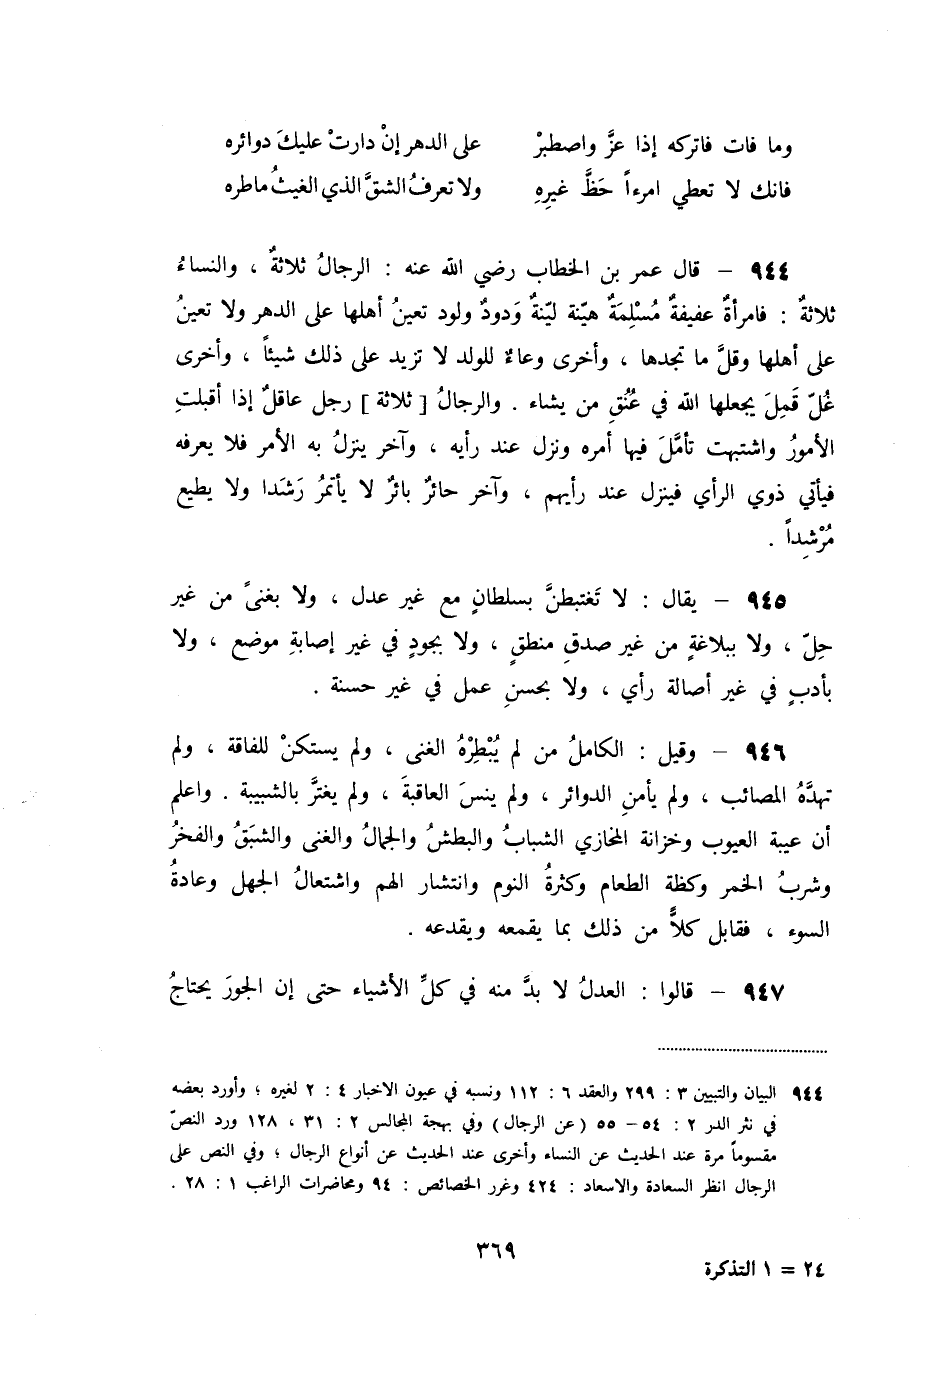 وما فات فاتركه إذا عزَّ واصطبرْ على الدهر إنْ دارتْ عليكَ دوائره
فانك لا تعطي امرءاً حَظَّ غيرِهِ ولا تعرفُ الشقَّ الذي الغيثُ ماطره
٩٤٤ – قال عمر بن الخطاب رضي الله عنه : الرجالُ ثلاثةٌ ، والنساءُ
ثلاثةٌ : فامرأةٌ عفيفةٌ مُسْلِمَةٌ هيّنة ليّنةٌ وَدودٌ ولود تعينُ أهلها على الدهر ولا تعينُ
على أهلها وقلَّ ما تجدها ، وأخرى وعاءٌ للولد لا تزيد على ذلك شيئاً ، وأخرى
غُلّ قَمِلَ يجعلها الله في عُنُقِ من يشاء . والرجالُ [ ثلاثة ] رجل عاقلٌ إذا أقبلتِ
الأمورُ واشتبهت تأمَّلَ فيها أمره ونزل عند رأيه ، وآخر ينزلُ به الأمر فلا يعرفه
فيأتي ذوي الرأي فينزل عند رأيهم ، وآخر حائرٌ بائرٌ لا يأتمرُ رَشَدا ولا يطيع
مُرْشِداً .
٩٤٥ – يقال : لا تَغتبطنَّ بسلطانٍ مع غير عدل ، ولا بغنىً من غير
حِلّ ، ولا ببلاغةٍ من غير صدقِ منطقٍ ، ولا بجودٍ في غير إصابةِ موضع ، ولا
بأدبٍ في غير أصالة رأي ، ولا بحسنِ عمل في غير حسنة .
٩٤٦ – وقيل : الكاملُ من لم يُبْطِرْهُ الغنى ، ولم يستكنْ للفاقة ، ولم
تهدَّهُ المصائب ، ولم يأمنِ الدوائر ، ولم ينسَ العاقبةَ ، ولم يغترَّ بالشبيبة . واعلم
أن عيبة العيوب وخزانة المخازي الشبابُ والبطشُ والجمالُ والغنى والشبَقُ والفخرُ
وشربُ الخمر وكظة الطعام وكثرةُ النوم وانتشار الهم واشتعالُ الجهل وعادةُ
السوء ، فقابل كلاًّ من ذلك بما يقمعه ويقدعه .
٩٤٧ – قالوا : العدلُ لا بدَّ منه في كلِّ الأشياء حتى إن الجورَ يحتاجُ
٩٤٤ البيان والتبيين ٣ : ٢٩٩ والعقد ٦ : ١١٢ ونسبه في عيون الاخبار ٤ : ٢ لغيره ؛ وأورد بعضه
في نثر الدر ٢ : ٥٤ – ٥٥ ( عن الرجال ) وفي بهجة المجالس ٢ : ٣١ ، ١٢٨ ورد النصّ
مقسوماً مرة عند الحديث عن النساء وأخرى عند الحديث عن أنواع الرجال ؛ وفي النص على
الرجال انظر السعادة والاسعاد : ٤٢٤ وغرر الخصائص : ٩٤ ومحاضرات الراغب ١ : ٢٨ .
٣٦٩
٢٤ = ١ التذكرة